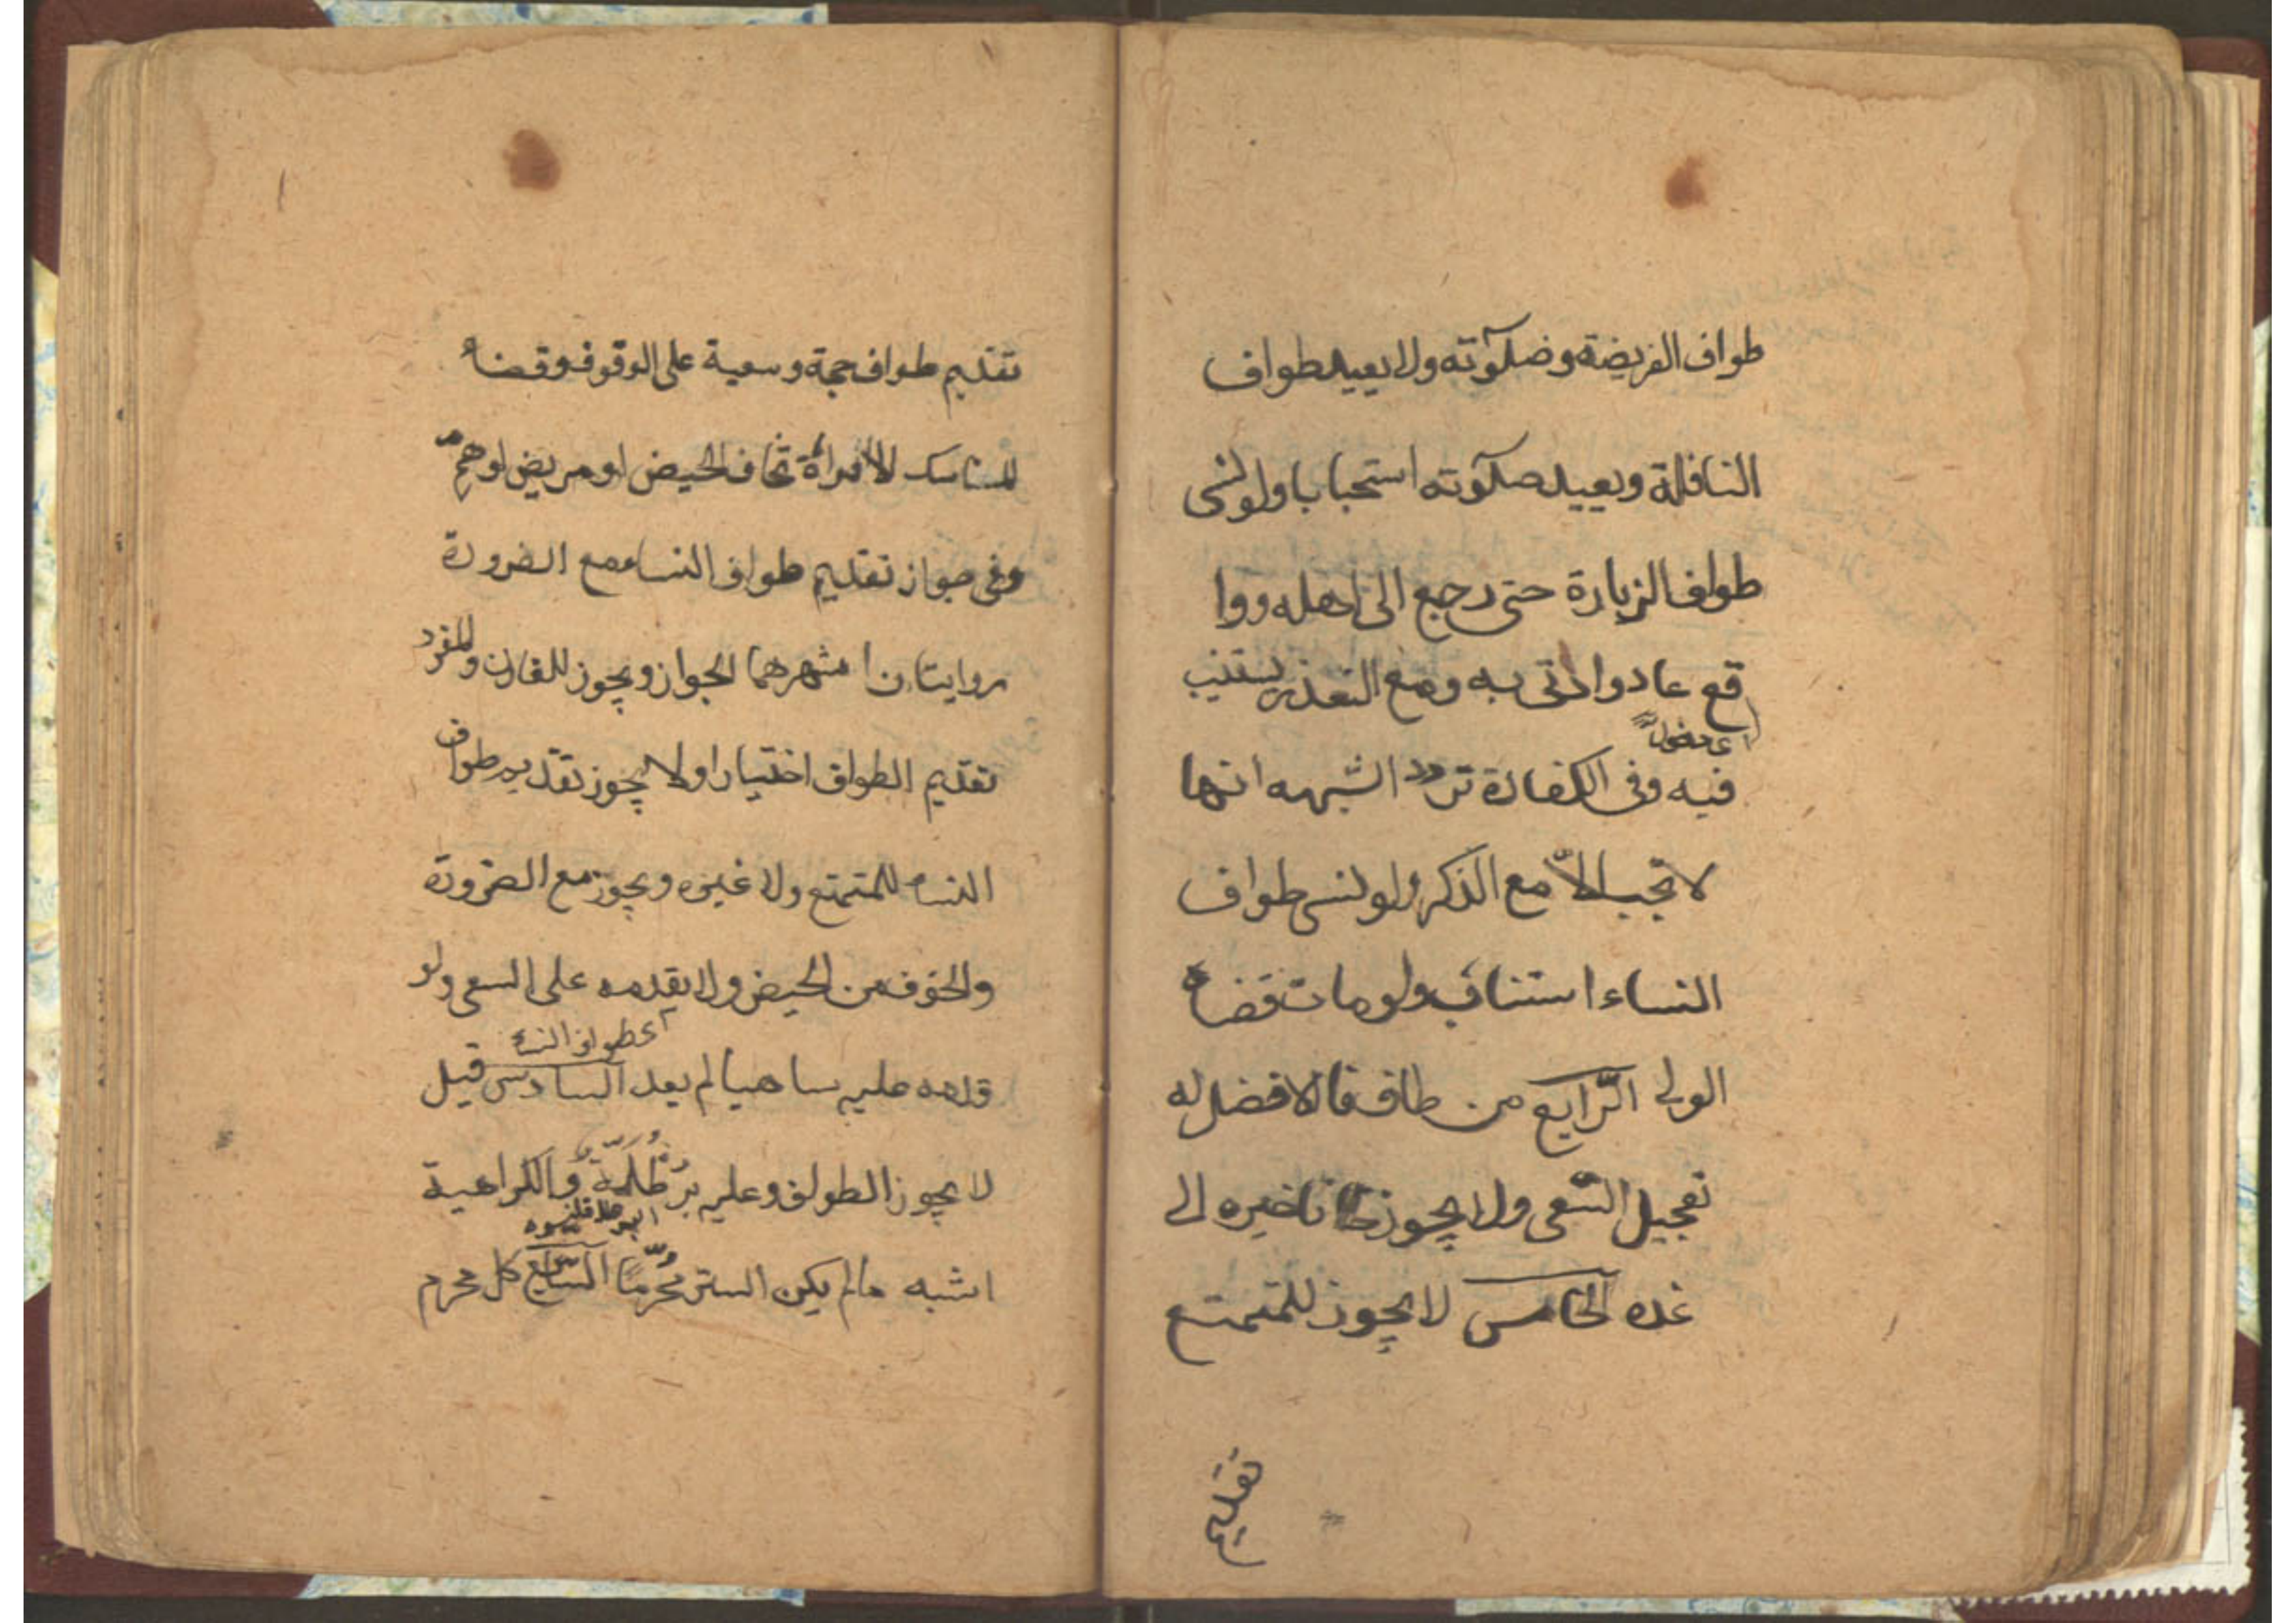 طواف الفريضة وصلوته ولا يعيد طواف
النافلة ويعيد صلوته استحبابا ولو نسى
طواف الزيارة حتى رجع الى اهله ووا
قع عاد واتى به ومع التعذر يستنيب
فيه وفى الكفارة تردد اشبهه انها
لا تجب الاّ مع الذكر ولو نسى طواف
النساء استناب ولو مات قضاه
الولى الرّابع من طاف فالافضل له
تعجيل السّعى ولا يجوز تاخيره الى
غده الخامس لا يجوز للمتمتع
تقديم
تقديم طواف حجة وسعية على الوقوف وقضاء
المناسك الا لامرأة تخاف الحيض او مريض او همّ
وفى جواز تقديم طواف النساء مع الضرورة
روايتان اشهرهما الجواز ويجوز للقارن وللمفرد
تقديم الطواف اختيارا ولا يجوز تقديم طواف
النساء للمتمتع ولا غيره ويجوز مع الضرورة
والخوف من الحيض ولا يقدمه على السعى ولو
اى طواف النساء
قدمه عليه ساهيا لم يعد السادس قيل
لا يجوز الطواف وعليه بُرْطُلَّةٌ والكراهية
اشبه مالم يكن الستر مُحَرَّمًا السّابع كل محرم